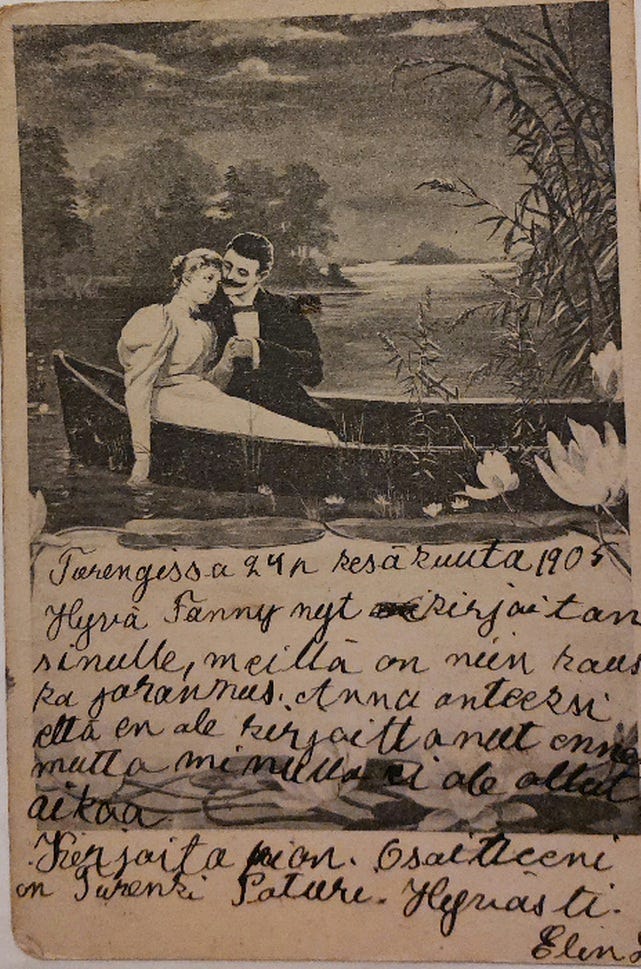 Turengissa 24 p kesäkuuta 1905
Hyvä Fanny nyt kirjoitan
sinulle, meillä on niin haus
ka johannus. Anna anteeksi
että en ole kirjoittanut enne
mutta minulla ei ole ollut
aikaa.
Kirjoita pian. Osoitteeni
on Turenki Paturi. Hyvästi.
Elin